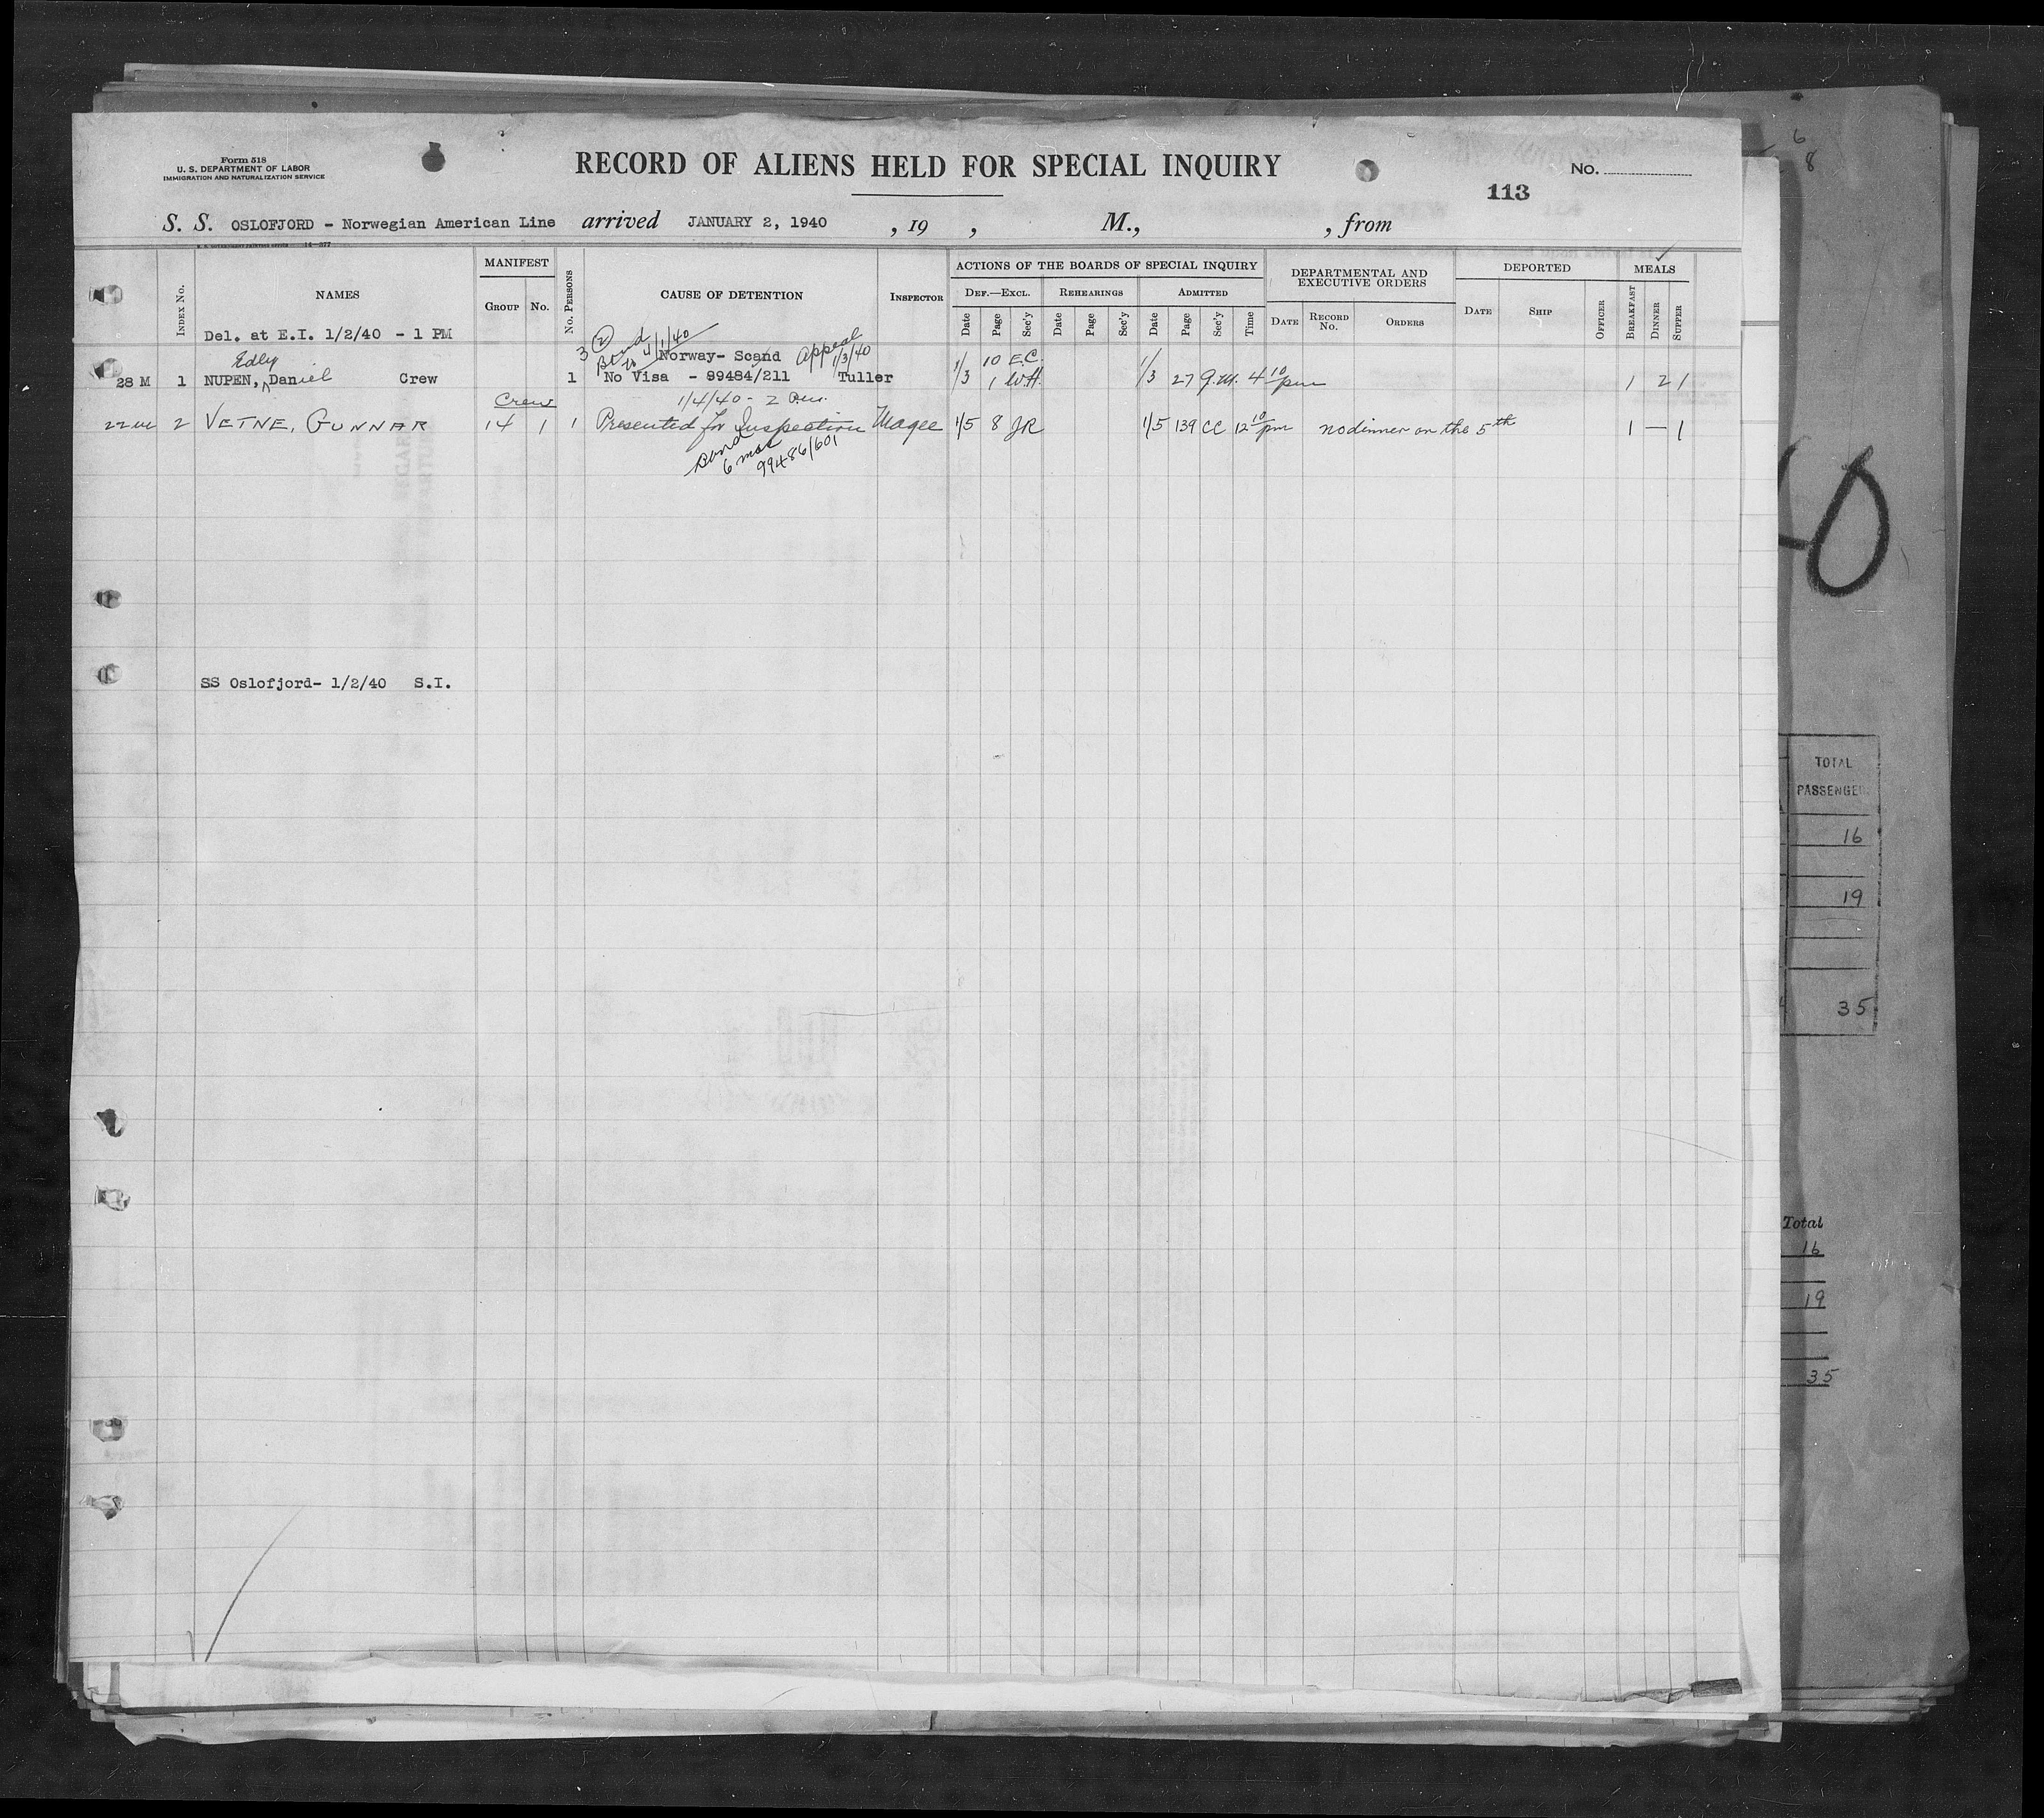 Form 518
U. S. DEPARTMENT OF LABOR
IMMIGRATION AND NATURALIZATION SERVICE
RECORD OF ALIENS HELD FOR SPECIAL INQUIRY
No.
113
S. S. OSLOFJORD - Norwegian American Line arrived JANUARY 2, 1940 , 19 , M., , from
14-277
INDEX No. NAMES MANIFEST GROUP No. No. PERSONS CAUSE OF DETENTION INSPECTOR ACTIONS OF THE BOARDS OF SPECIAL INQUIRY DEF.—EXCL. Date Page Sec'y REHEARINGS Date Page Sec'y ADMITTED Date Page Sec'y Time DEPARTMENTAL AND EXECUTIVE ORDERS DATE RECORD No. ORDERS DEPORTED DATE SHIP OFFICER MEALS BREAKFAST DINNER SUPPER
Del. at E.I. 1/2/40 - 1 PM
3 2 Bond to 4/1/40
Edly Norway- Scand Appeal 1/3/40 10 E.C.
28 M 1 NUPEN, Daniel Crew 1 No Visa - 99484/211 Tuller 1/3 1 W.H. 1/3 27 4 10 pm 1 2 1
Crew 1/4/40 - 2 P.m.
22 M 2 VETNE, GUNNAR 14 1 1 Presented for Inspection Magee 1/5 8 JR 1/5 139 CC 12 10 pm no dinner on the 5th 1 — 1
Bond 6 mos
99486/601
SS Oslofjord- 1/2/40 S.I.
6
8
40
TOTAL
PASSENGER
16
19
35
Total
16
19
35